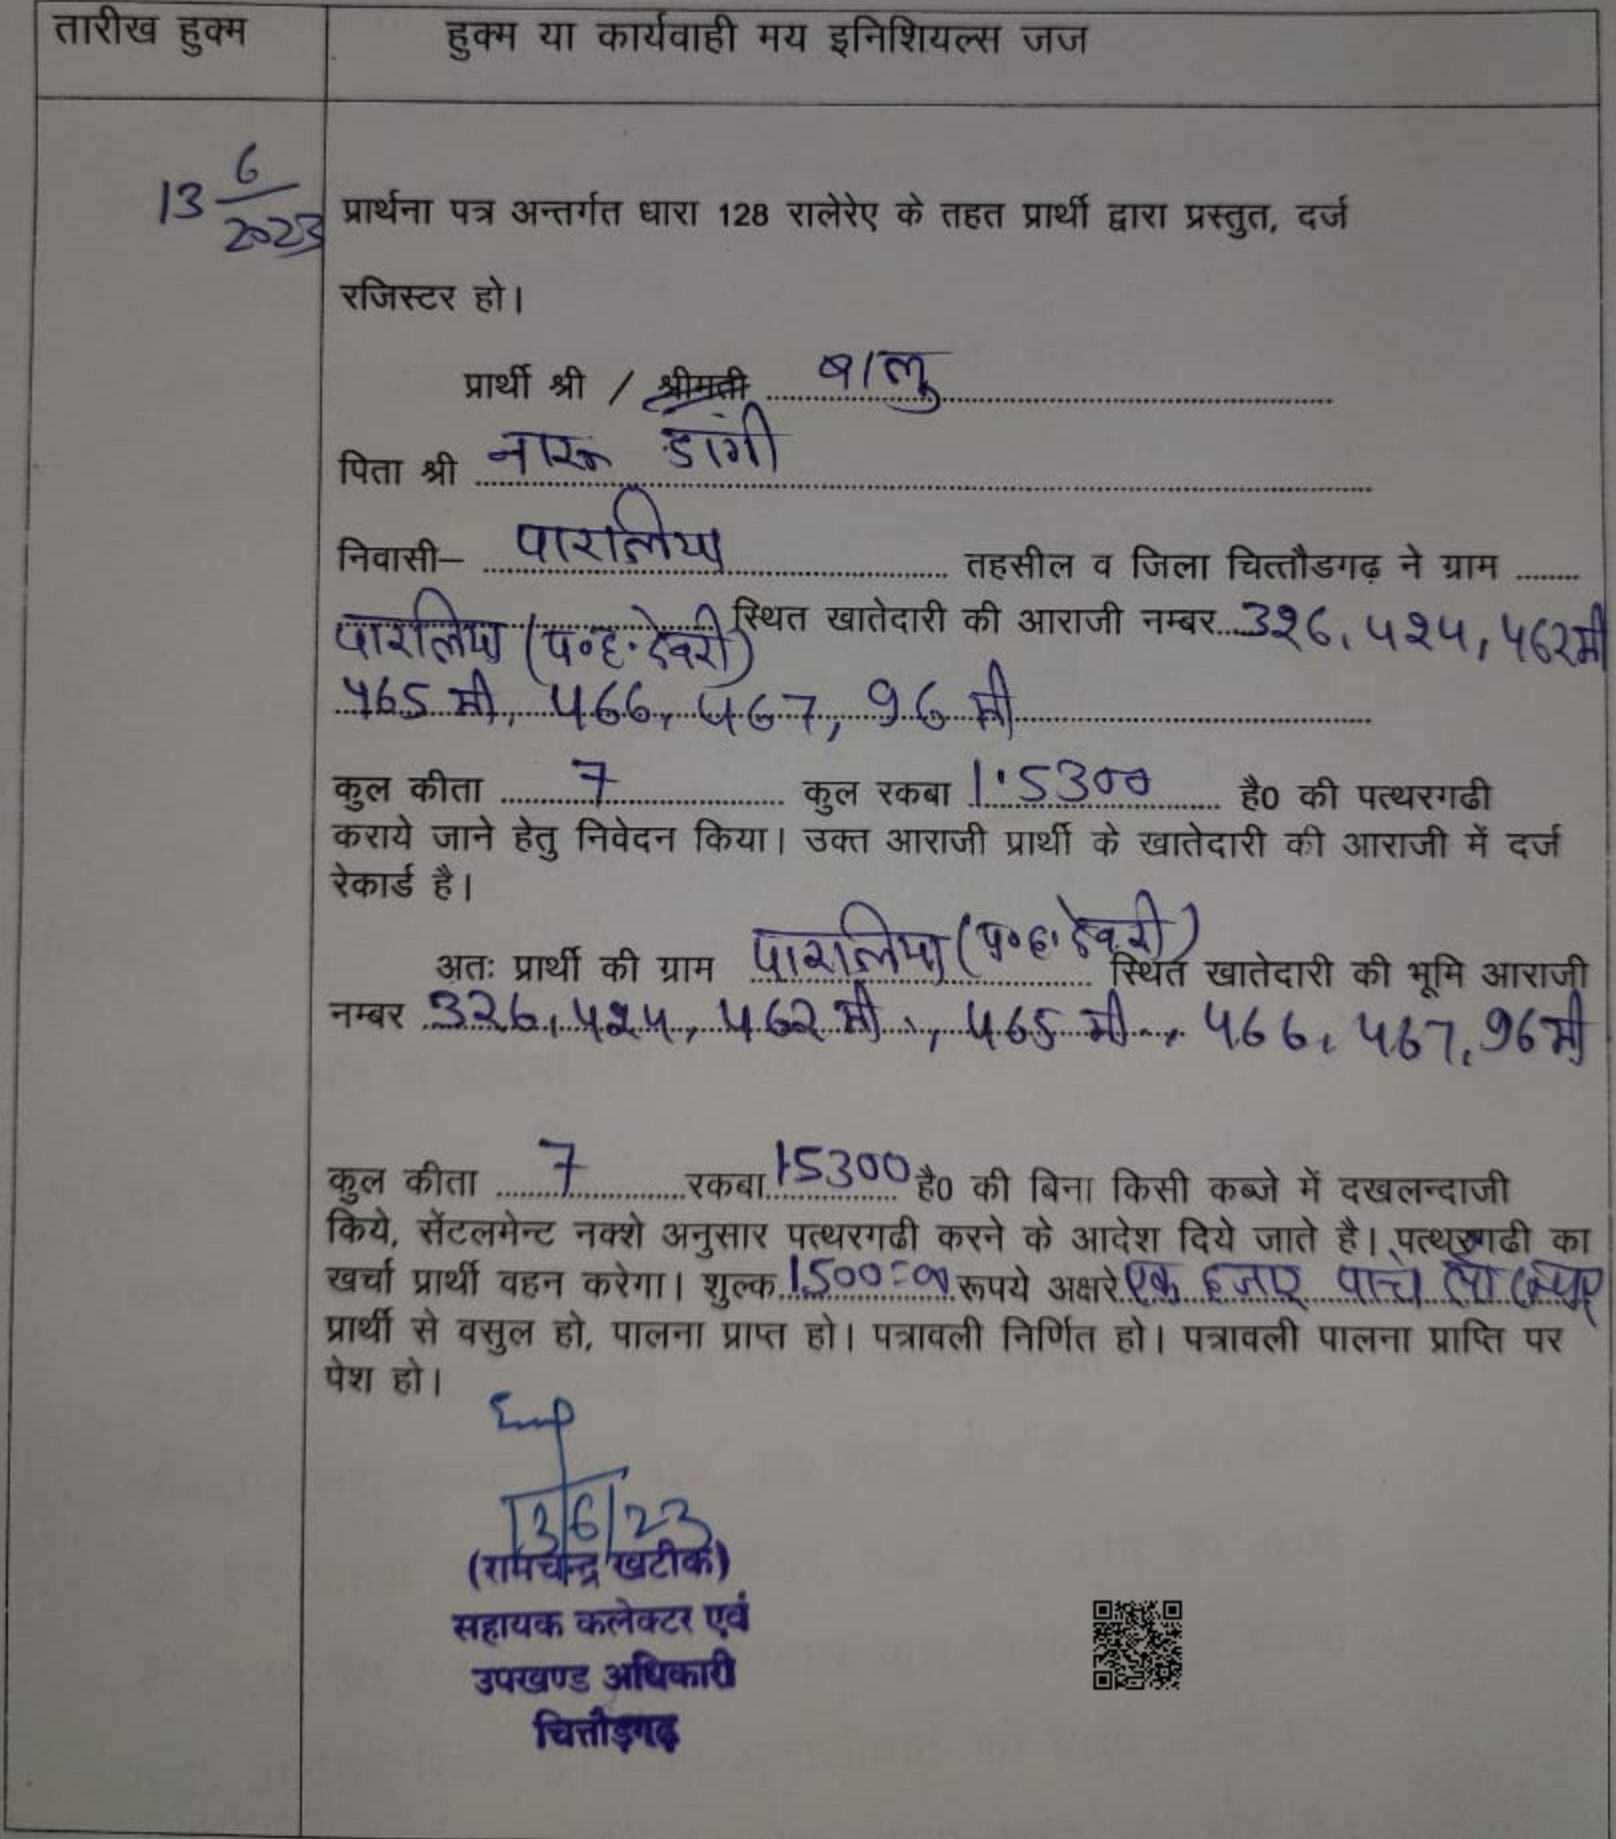 तारीख हुक्म
हुक्म या कार्यवाही मय इनिशियल्स जज
13 6/2023
प्रार्थना पत्र अन्तर्गत धारा 128 रालेरेए के तहत प्रार्थी द्वारा प्रस्तुत, दर्ज
रजिस्टर हो।
प्रार्थी श्री / श्रीमती बालु
पिता श्री नारू डांगी
निवासी– पारालिया तहसील व जिला चित्तौडगढ़ ने ग्राम
पारालिया (प०ह० देवरी) स्थित खातेदारी की आराजी नम्बर 326, 424, 462मी
465 मी, 466, 467, 96 मी
कुल कीता 7 कुल रकबा 1.5300 है0 की पत्थरगढी
कराये जाने हेतु निवेदन किया। उक्त आराजी प्रार्थी के खातेदारी की आराजी में दर्ज
रेकार्ड है।
अतः प्रार्थी की ग्राम पारालिया (प०ह० देवरी) स्थित खातेदारी की भूमि आराजी
नम्बर 326, 424, 462 मी, 465 मी, 466, 467, 96मी
कुल कीता 7 रकबा 1.5300 है0 की बिना किसी कब्जे में दखलन्दाजी
किये, सेंटलमेन्ट नक्शे अनुसार पत्थरगढी करने के आदेश दिये जाते है। पत्थरगढी का
खर्चा प्रार्थी वहन करेगा। शुल्क 1500=00 रूपये अक्षरे एक हजार पांच सौ रूपए
प्रार्थी से वसुल हो, पालना प्राप्त हो। पत्रावली निर्णित हो। पत्रावली पालना प्राप्ति पर
पेश हो।
13/6/23
(रामचन्द्र खटीक)
सहायक कलेक्टर एवं
उपखण्ड अधिकारी
चित्तौड़गढ़